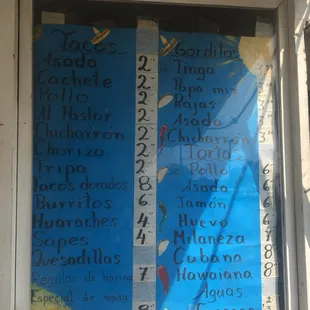 Tacos
Asada 2
Cachete 2
Pollo 2
Al Pastor 2
Chicharron 2
Chorizo 2
Tripa 2
Tacos dorados 8
Burritos 6
Huaraches 4
Sopes 4
Quesadillas
Regular de harina 7
Especial de masa 8
Gorditas
Tinga 3
Papa mix 3
Rajas 3
Asada 3
Chicharron 3
Torta
Pollo 6
Asada 6
Jamón 6
Huevo 6
Milaneza 7
Cubana 8
Hawaiana 8
Aguas